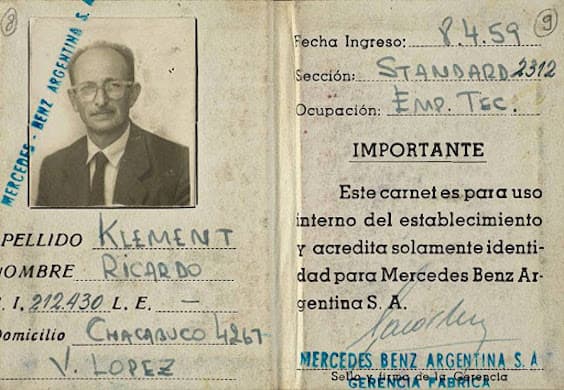 8
MERCEDES - BENZ ARGENTINA S. A.
APELLIDO KLEMENT
NOMBRE RICARDO
C. I. 212.430 L. E. —
Domicilio CHACABUCO 4267
V. LOPEZ
9
Fecha Ingreso: 8.4.59
Sección: STANDARD 2312
Ocupación: EMP. TEC.
IMPORTANTE
Este carnet es para uso
interno del establecimiento
y acredita solamente identi-
dad para Mercedes Benz Ar-
gentina S. A.
MERCEDES BENZ ARGENTINA S. A
Sello y firma de la Gerencia
GERENCIA FABRICA